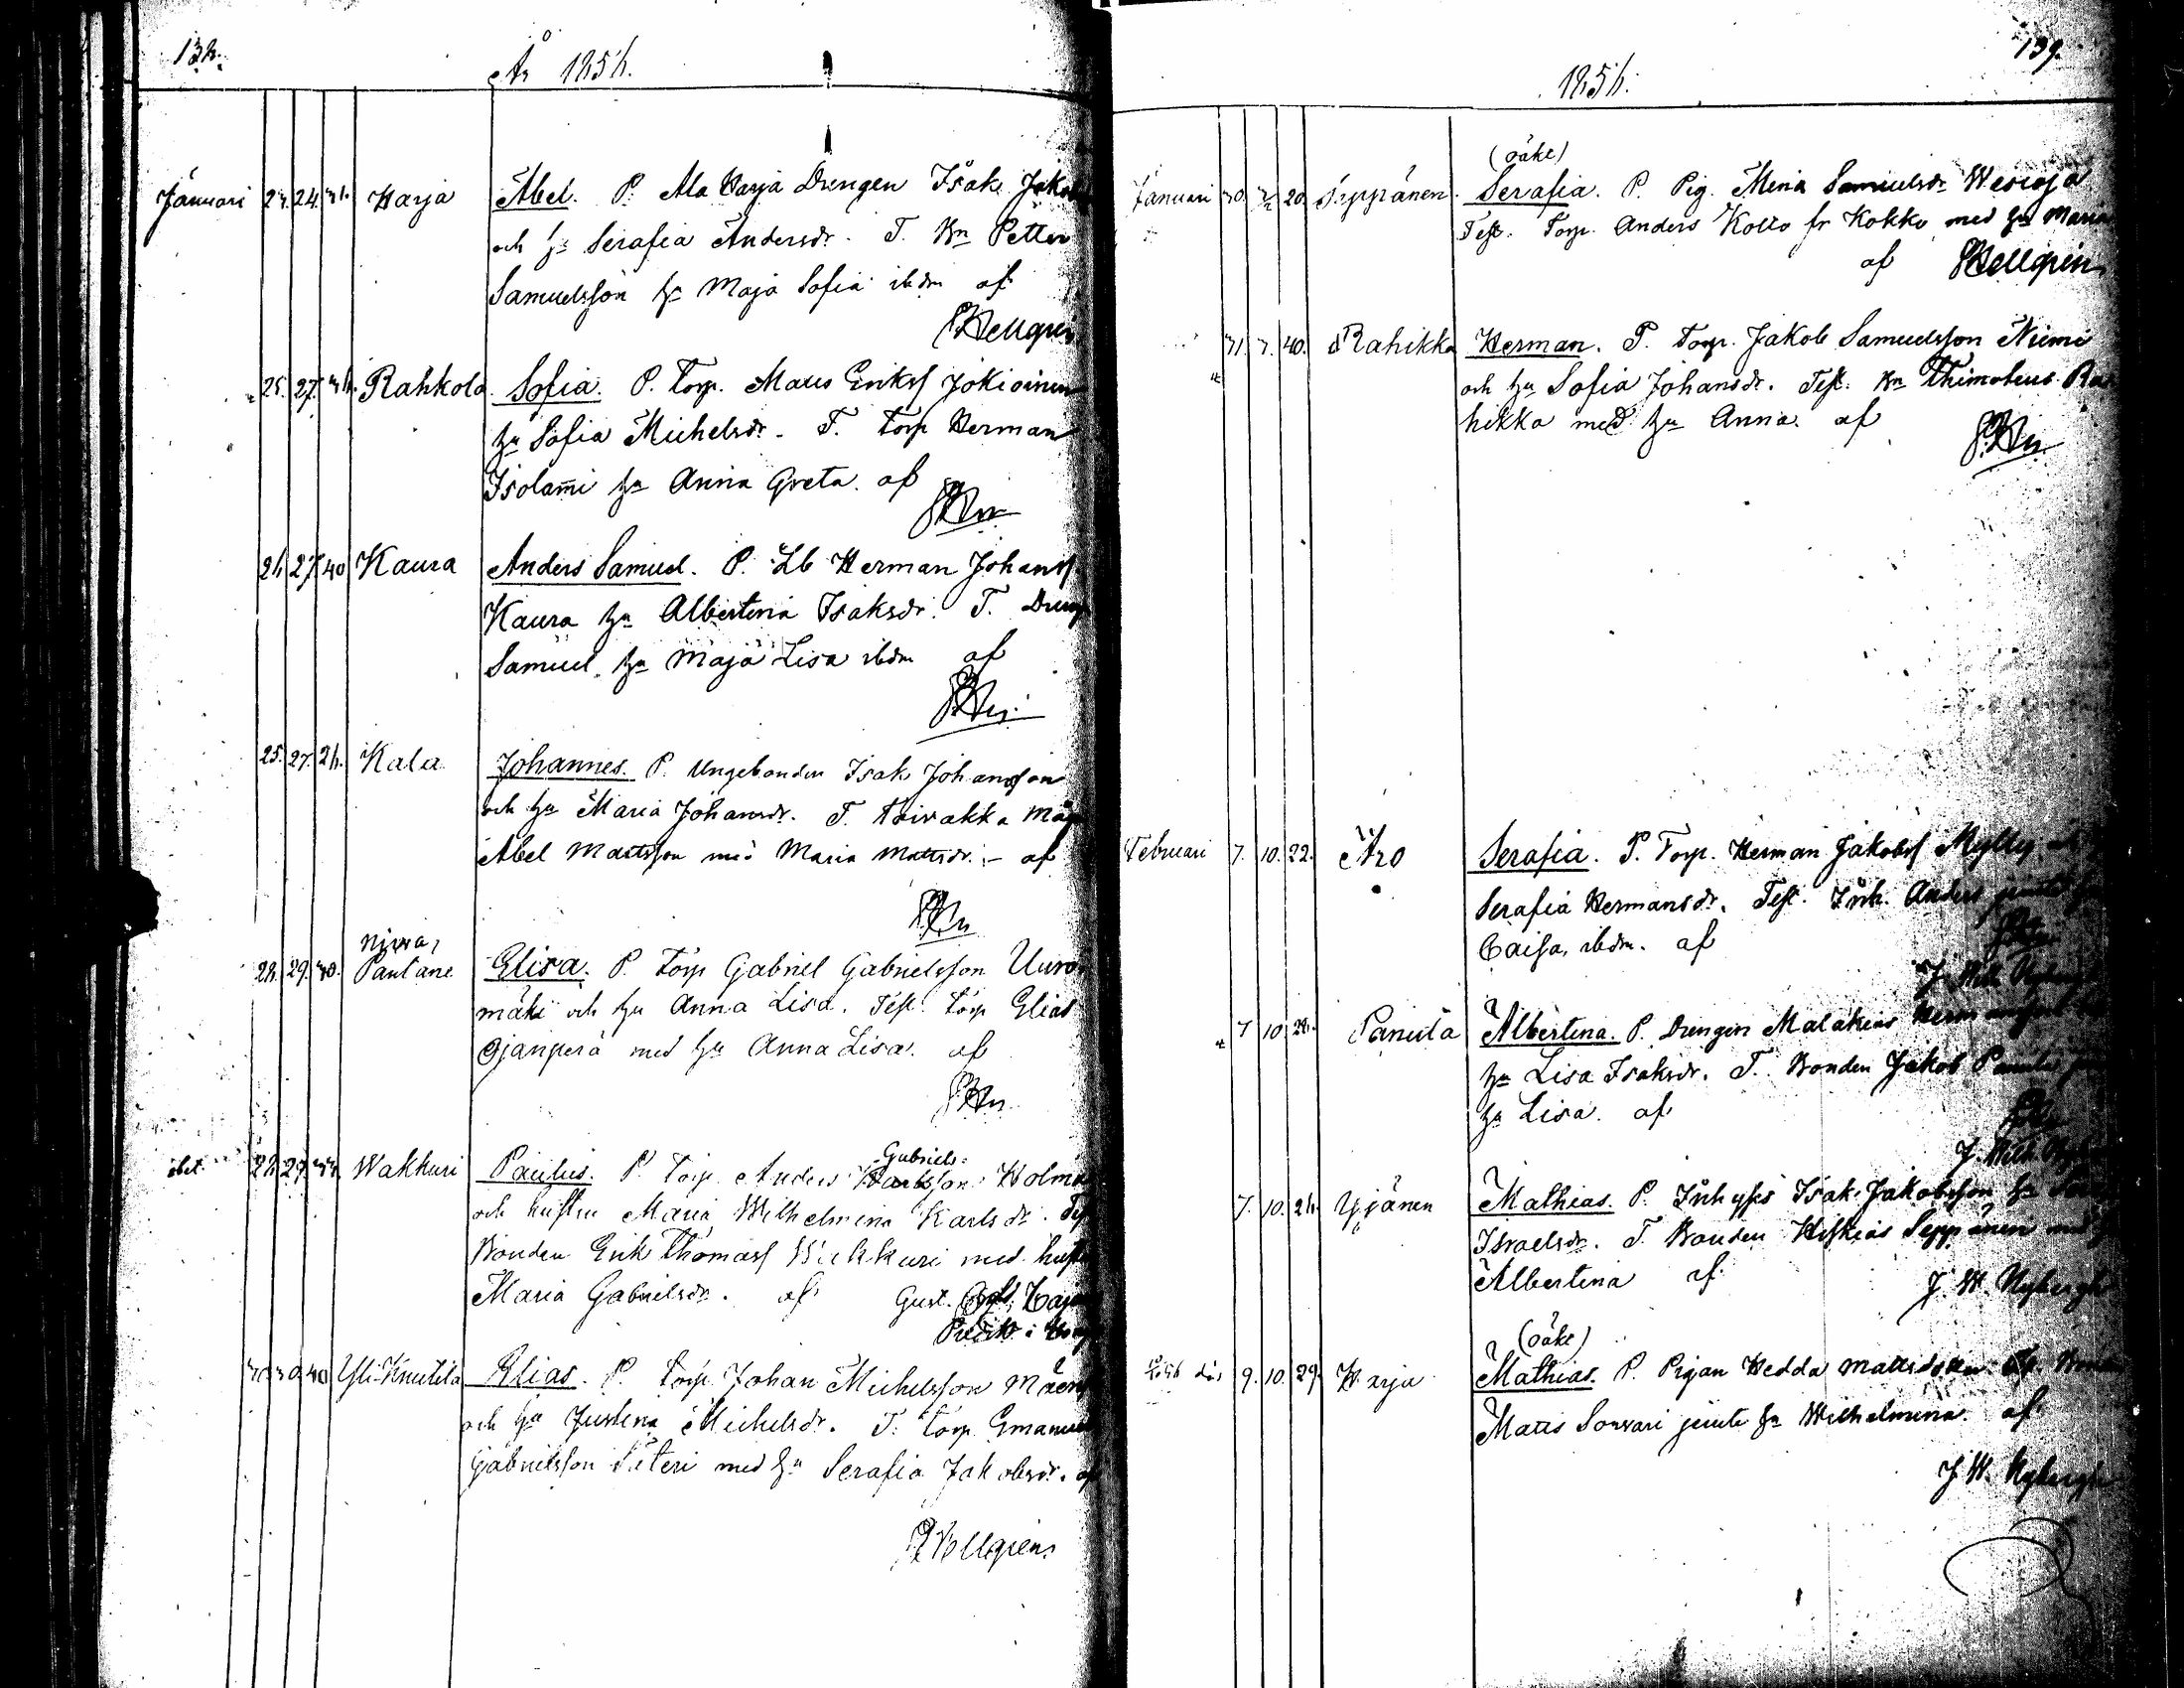 138.
År 1858.
Januari 23. 24. 38. Harja Abel. P. Ala Harja Drengen Isak Jakobs
och hu Serafia Andersdr. T. Bn Petter
Samuelsson hu Maja Sofia ibdm af
Hellgren
25. 27. 38. Rahkola Sofia. P. Torp. Matts Eriksf Jokioinen
hu Sofia Michelsdr. T. Torp Herman
Isolami hu Anna Greta. af
28 27 40 Kaura Anders Samuel. P. Lb Herman Johansf
Kaura hu Albertina Isaksdr. T. Dreng
Samuel hu Maja Lisa ibdm af
25. 27. 28. Kala Johannes. P. Ungebonden Isak Johansson
och hu Maria Johansdr. T. Koivakka Måg
Abel Mattsson med Maria Mattsdr. - af
Nirva,
28. 29. 30. Pantane Elisa. P. Torp Gabriel Gabrielsson Uuro
mäki och hu Anna Lisa. Test. Torp Elias
Ojanperä med hu Anna Lisa. af
Gabriels-
28 29. 33. Wakkuri Paulus. P. Torp Anders Karlsson Holm
och hustru Maria Wilhelmina Karlsdr. Test
Bonden Erik Thomasf Wakkuri med hustru
Maria Gabrielsdr. af Gust. Adf. Caja
Predik. i
30 30 40 Yli-Knuutila Elias. P. Torp. Johan Michelsson Mäen
och hu Justina Michelsdr. T. Torp Emanuel
Gabrielsson Säteri med hu Serafia Jakobsdr. af
Hellgren
139.
1858.
(oäkt)
Januari 30. 20 Seppänen. Serafia. P. Pig. Mina Samuelsdr Wesioja
Test. Torp. Anders Kotto fr Kokko med hu Maria
af Hellgren
31 3. 40. Rahikka Herman. P. Torp. Jakob Samuelsson Niemi
och hu Sofia Johansdr. Test. Bn Thimoteus Ra
hikka med hu Anna. af
Februari 7. 10. 22. Aro Serafia. P. Torp. Herman Jakobsf Myllyj
Serafia Hermansdr. Test. Inh. Anders jemte
Caisa, ibdm. af
7 10. 28. Panula Albertina. P. Drengen Malakias Hermansson
hu Lisa Isaksdr. T. Bonden Jakob Panula
hu Lisa. af
7. 10. 24. Yjänen Mathias. P. Inhyses Isak Jakobsson hu
Israelsdr. T. Bonden Hiskias Seppänen med
Albertina af J. W. Nybergh
(oäkt)
9. 10. 29. Harju Mathias. P. Pigan Hedda Mattsdotter T.
Matts Sorvari jemte hu Wilhelmina. af
J. W. Nybergh